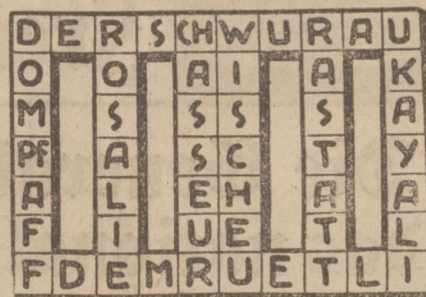 D E R S CH W U R A U
O O A I A K
M S S S S A
PF A S C T Y
A L E H A A
F I U E T L
F D E M R U E T L I